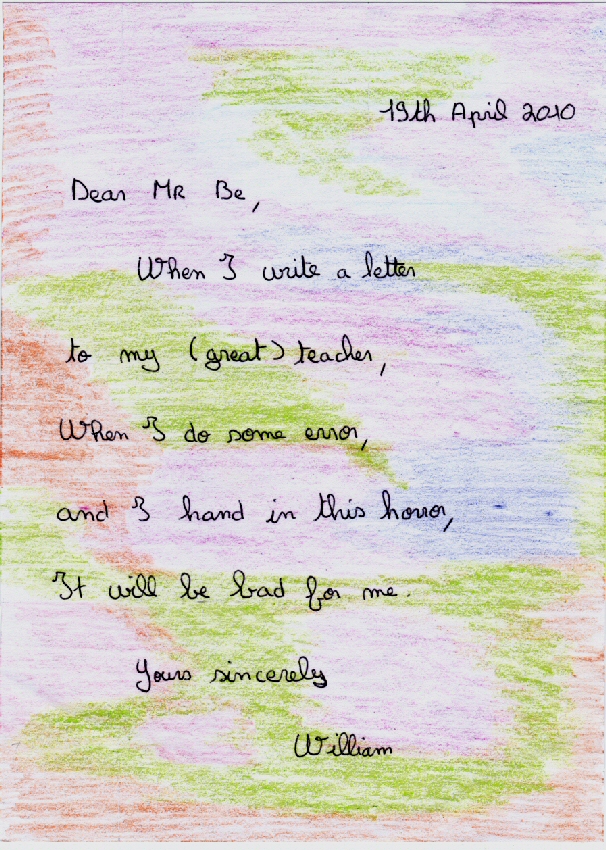 19th April 2010
Dear MR Be,
When I write a letter
to my (great) teacher,
When I do some error,
and I hand in this horror,
It will be bad for me.
Yours sincerely
William